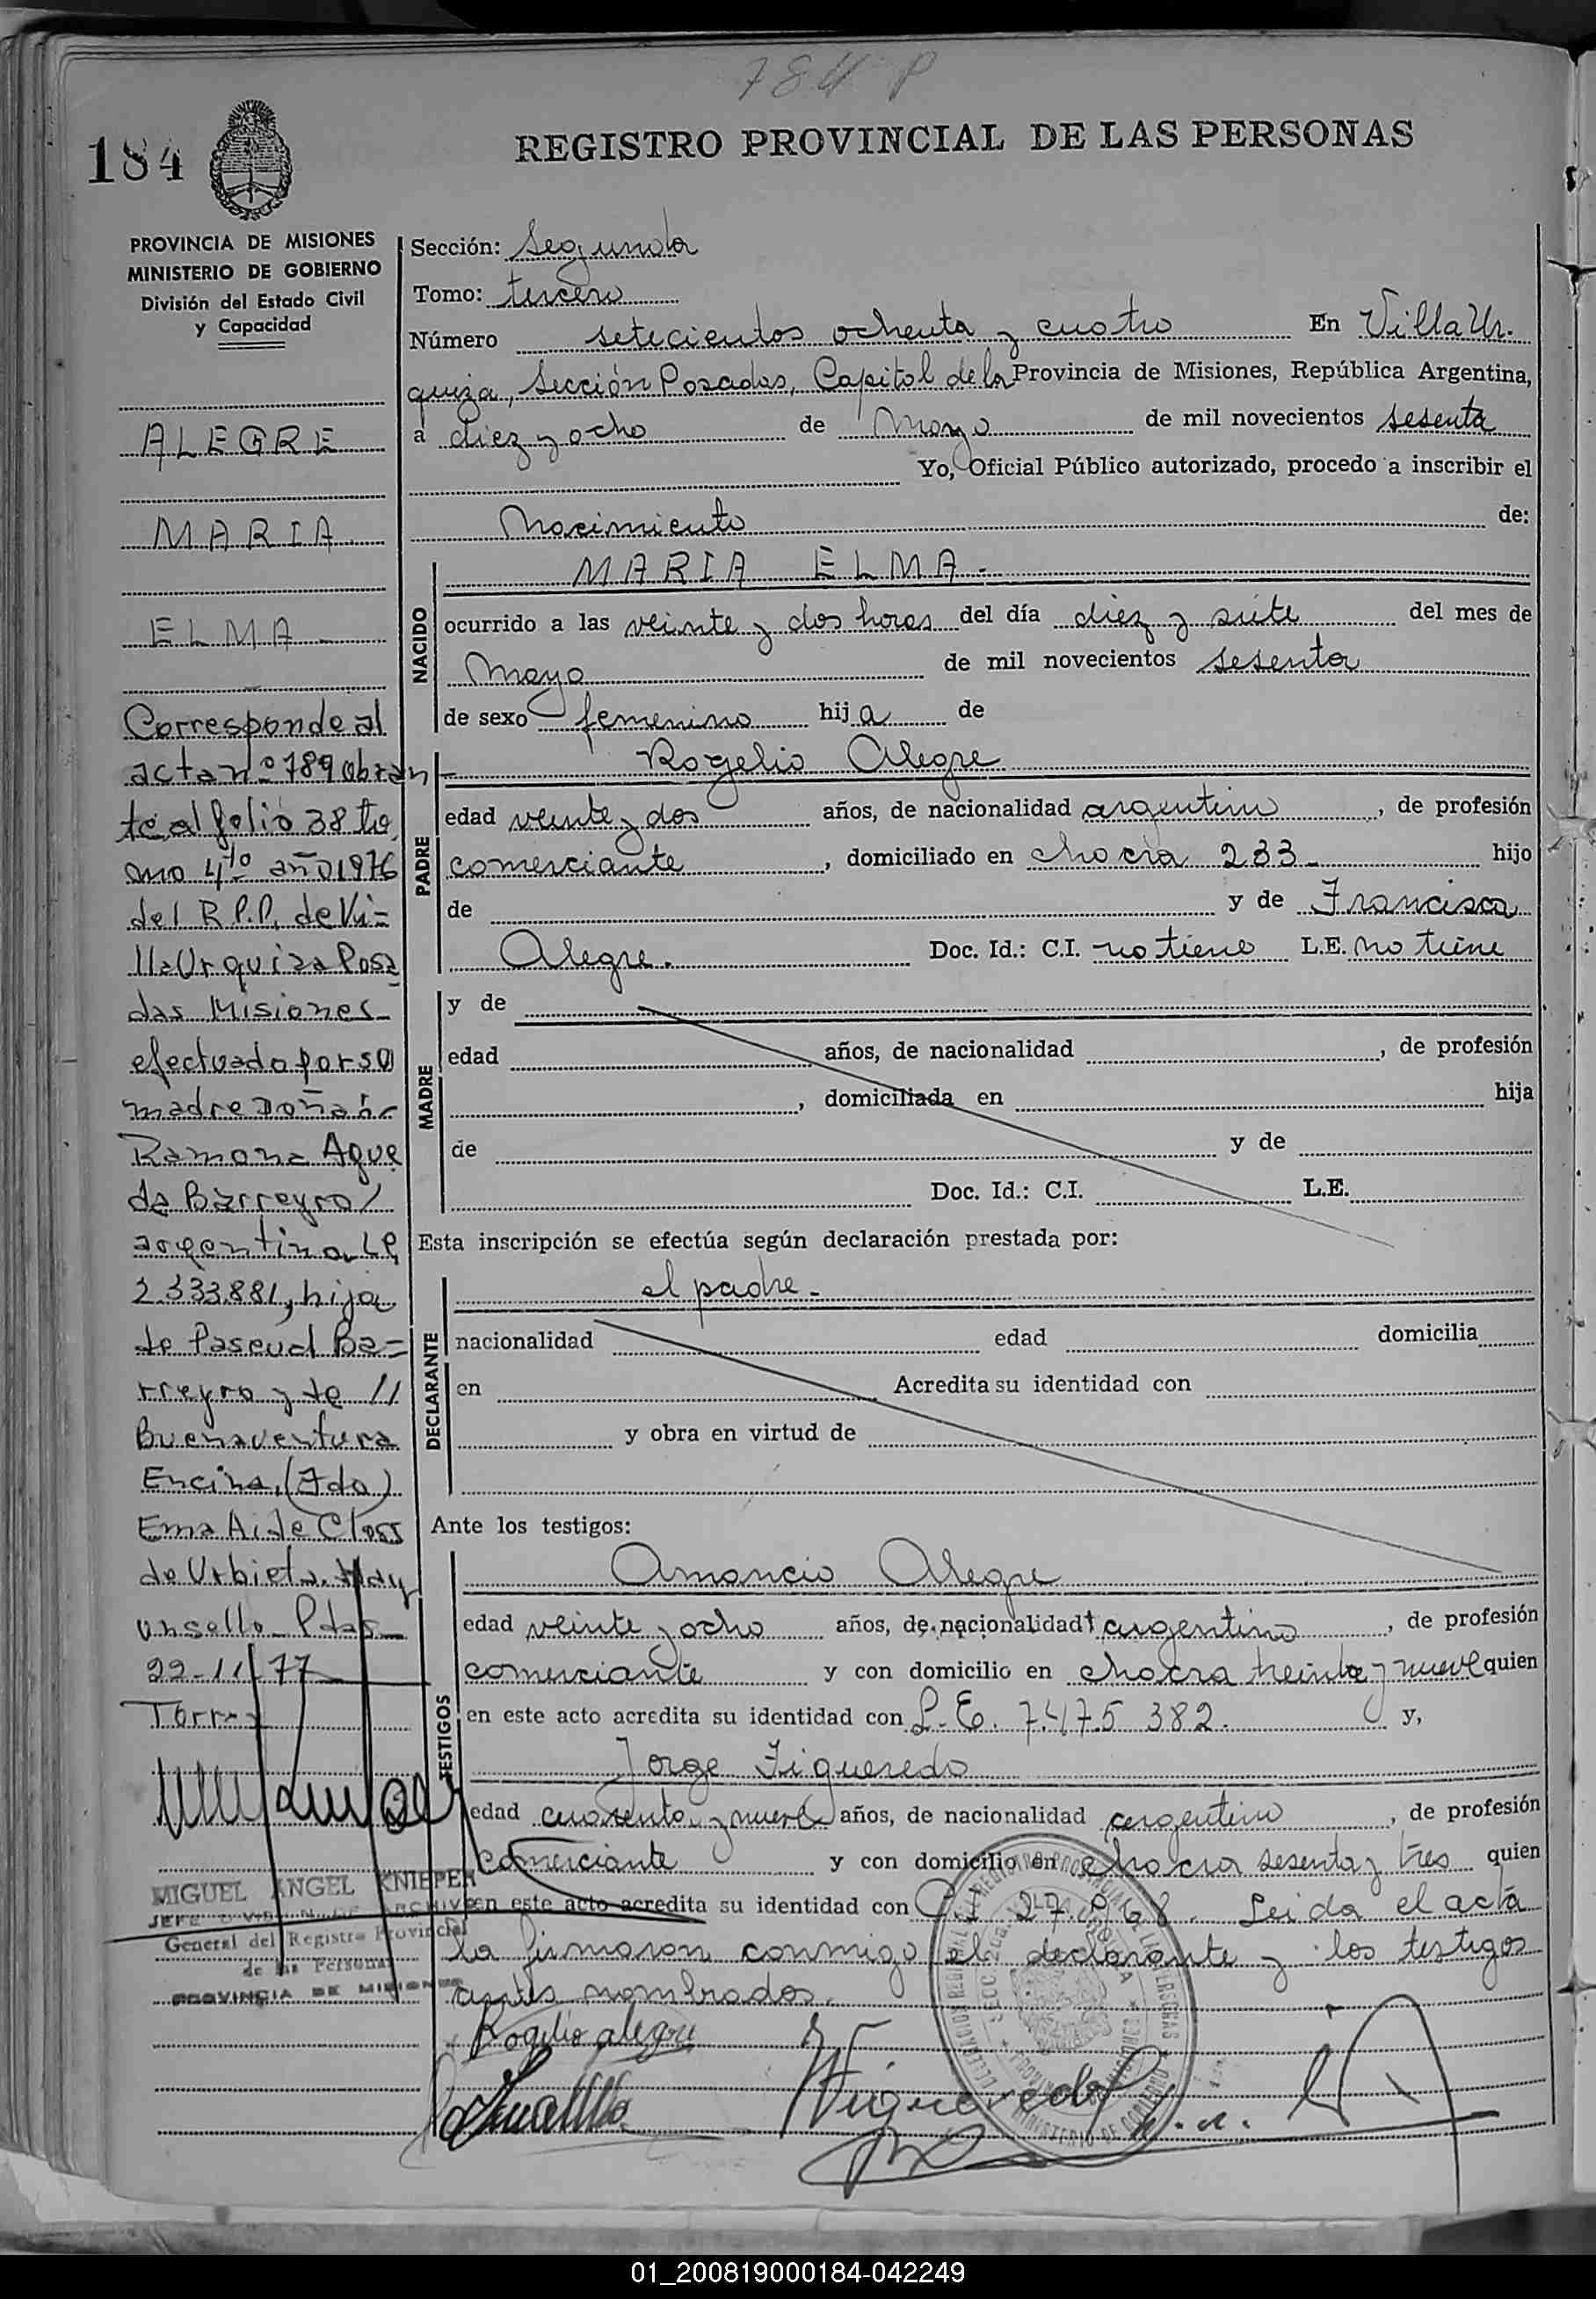 784 P
184
REGISTRO PROVINCIAL DE LAS PERSONAS
PROVINCIA DE MISIONES
MINISTERIO DE GOBIERNO
División del Estado Civil
y Capacidad
ALEGRE
MARIA
ELMA -
Corresponde al
acta nº 789 obran
te al folio 38 to
mo 4to año 1976
del R.P.P. de Vi=
lla Urquiza Posa
das Misiones
efectuado por su
madre Doña
Ramona Ague
da Barreyro/
argentina LC
2.333.881, hija
de Pascual Ba=
rreyro y de //
Buenaventura
Encina, (Fdo)
Ema Aide Closs
de Urbieta. Hay
un sello Pdas
22-11-77
Torres
MIGUEL ANGEL KNIEPER
JEFE DIVISION ARCHIVO
General del Registro Provincial
de las Personas
PROVINCIA DE MISIONES
Sección: Segunda
Tomo: tercero
Número setecientos ochenta y cuatro En Villa Ur.
quiza, Sección Posadas, Capital de la Provincia de Misiones, República Argentina,
a diez y ocho de Mayo de mil novecientos sesenta
Yo, Oficial Público autorizado, procedo a inscribir el
Nacimiento de:
NACIDO
MARIA ELMA -
ocurrido a las veinte y dos horas del día diez y siete del mes de
Mayo de mil novecientos sesenta
de sexo femenino hija de
PADRE
Rogelio Alegre
edad veinte y dos años, de nacionalidad argentino, de profesión
comerciante, domiciliado en chacra 233 - hijo
de y de Francisca
Alegre. Doc. Id.: C.I. no tiene L.E. no tiene
MADRE
y de
edad años, de nacionalidad , de profesión
, domiciliada en hija
de y de
Doc. Id.: C.I. L.E.
Esta inscripción se efectúa según declaración prestada por:
DECLARANTE
el padre -
nacionalidad edad domicilia
en Acredita su identidad con
y obra en virtud de
Ante los testigos:
TESTIGOS
Amancio Alegre
edad veinte y ocho años, de nacionalidad argentino, de profesión
comerciante y con domicilio en chacra treinta y nueve quien
en este acto acredita su identidad con L.E. 7.475 382. y,
Jorge Figueredo
edad cuarenta y nueve años, de nacionalidad argentino, de profesión
comerciante y con domicilio en chacra sesenta y tres quien
en este acto acredita su identidad con C.I. Leida el acta
la firmaron conmigo el declarante y los testigos
antes nombrados.
Rogelio alegre
Figueredo
01_200819000184-042249